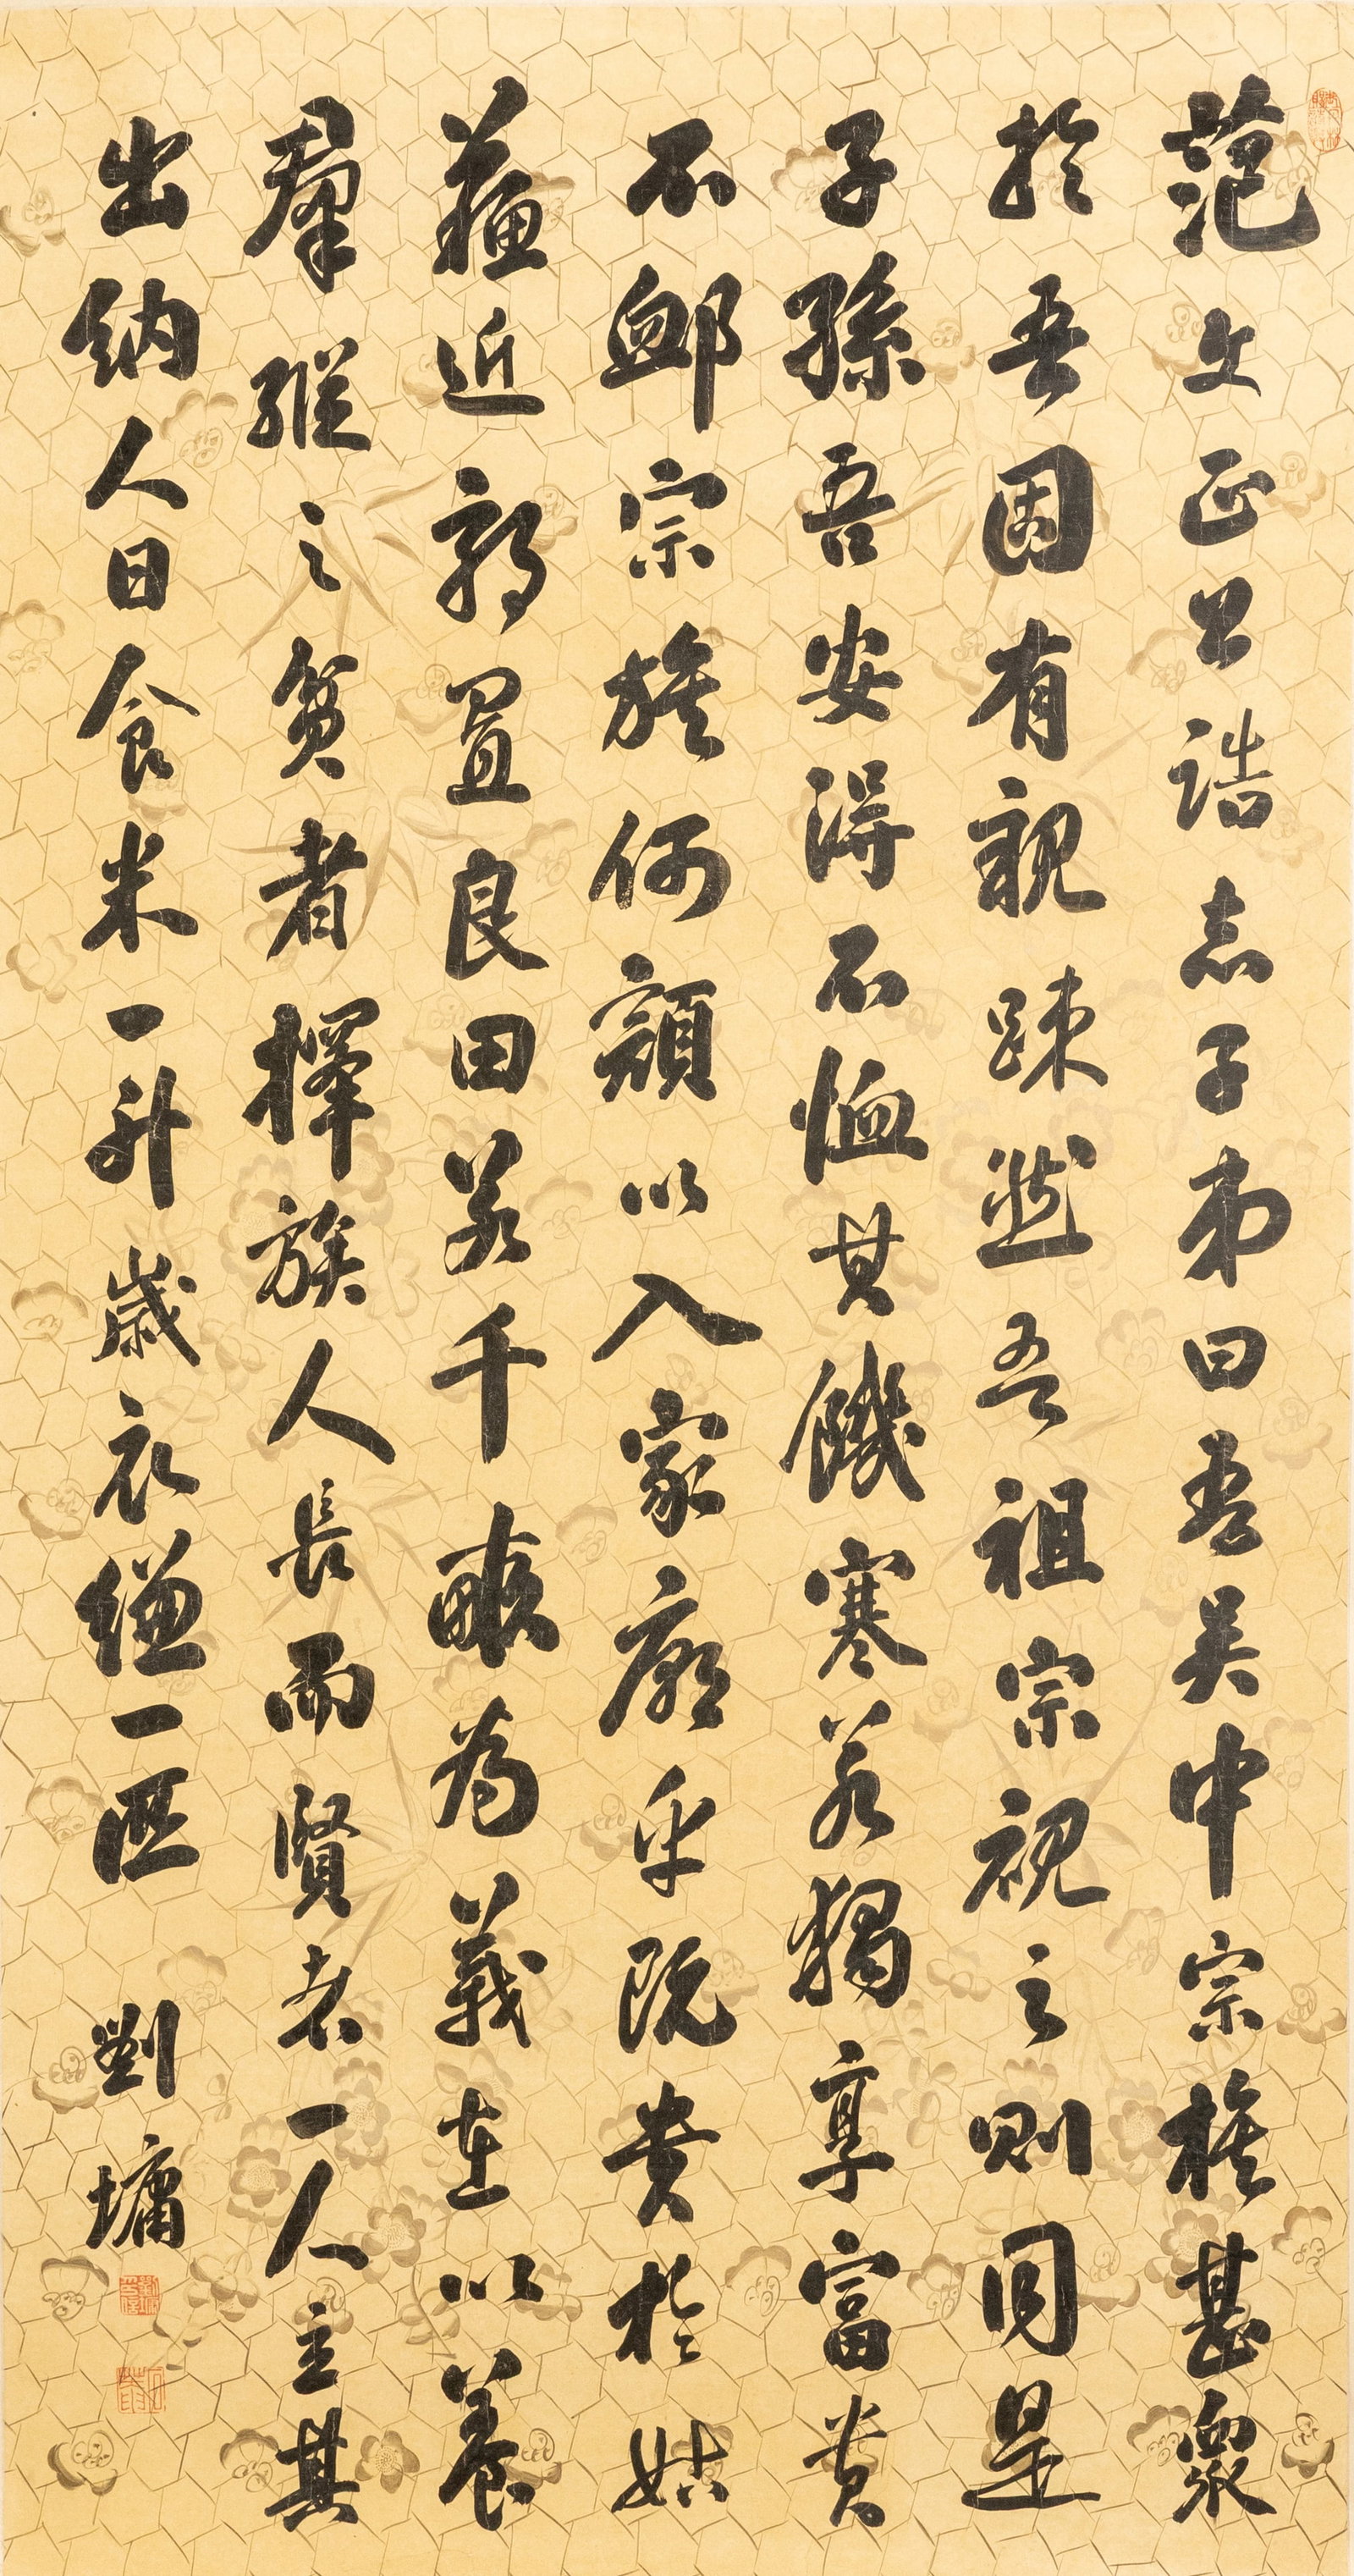 范文正公誥志子弟曰吾吴中宗族甚衆
於吾固有親踈然吾祖宗視之則同是
子孫吾安得不恤其饑寒若獨享富貴
不䘏宗族何顔以入家廟乎既貴於姑
蘇近郭置良田若千畝為義莊以養
羣從之貧者擇族人長而賢者一人主其
出納人日食米一升歲衣縑一匹
劉墉